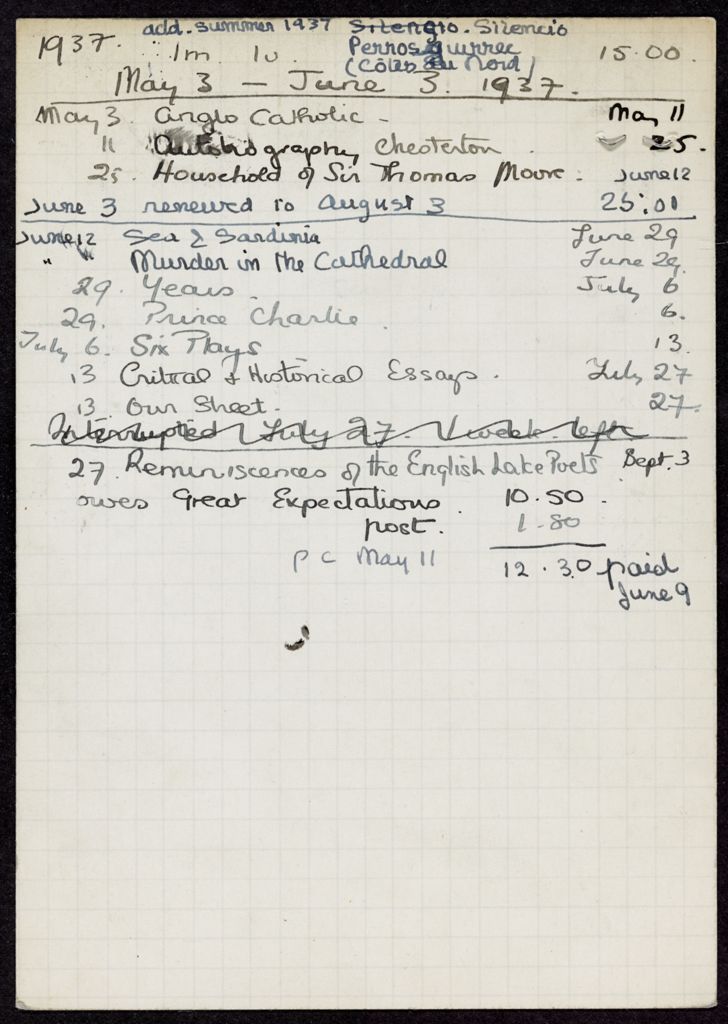 add. summer 1937 Silencio. Silencio
1937. 1m 1v Perros guirrec 15.00.
(Côtes du Nord)
May 3 — June 3. 1937.
May 3. Anglo Catholic - May 11
11 Autobiography, Chesterton . 25.
25. Household of Sir Thomas Moore. June 12
June 3 renewed to August 3 25.01
June 12 Sea & Sardinia June 29
" " Murder in the Cathedral June 29.
29. Years. July 6
29. Prince Charlie. 6.
July 6. Six Plays 13.
13 Critical & Historical Essays. July 27
13. Our Street. 27.
Interrupted July 27. 1 week left
27. Reminiscences of the English Lake Poets Sept. 3
owes Great Expectations. 10.50.
post. 1.80
pc May 11 12.30 paid
June 9